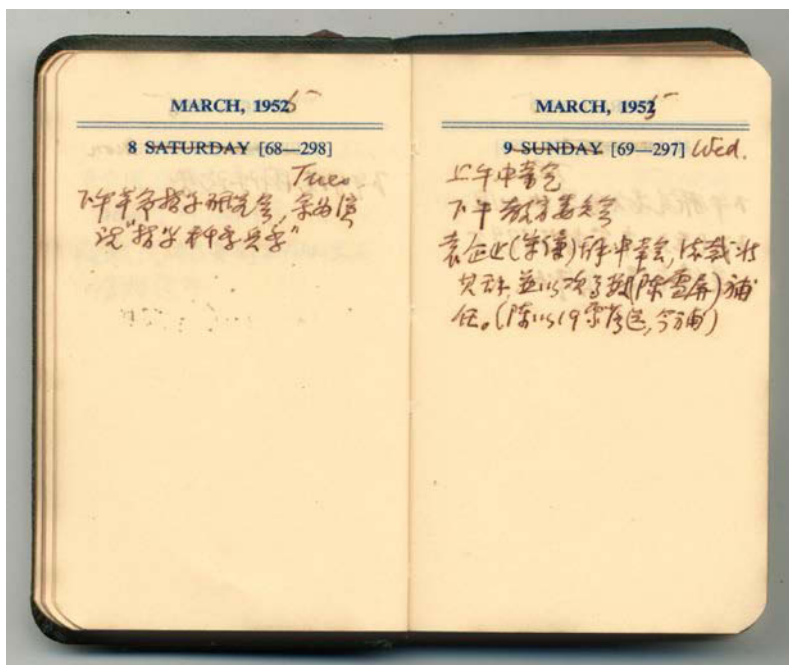 MARCH, 1952 5
8 SATURDAY [68—298]
Tues.
下午革命哲学研究会,余为演
说"哲学科学兵学"
MARCH, 1952 5
9 SUNDAY [69—297] Wed.
上午中常会
下午教育委员会
袁企止(守谦)辞中常会,总裁准
其辞,並以次多数(陈雪屏)補
任。(陈以19票落选,今補)